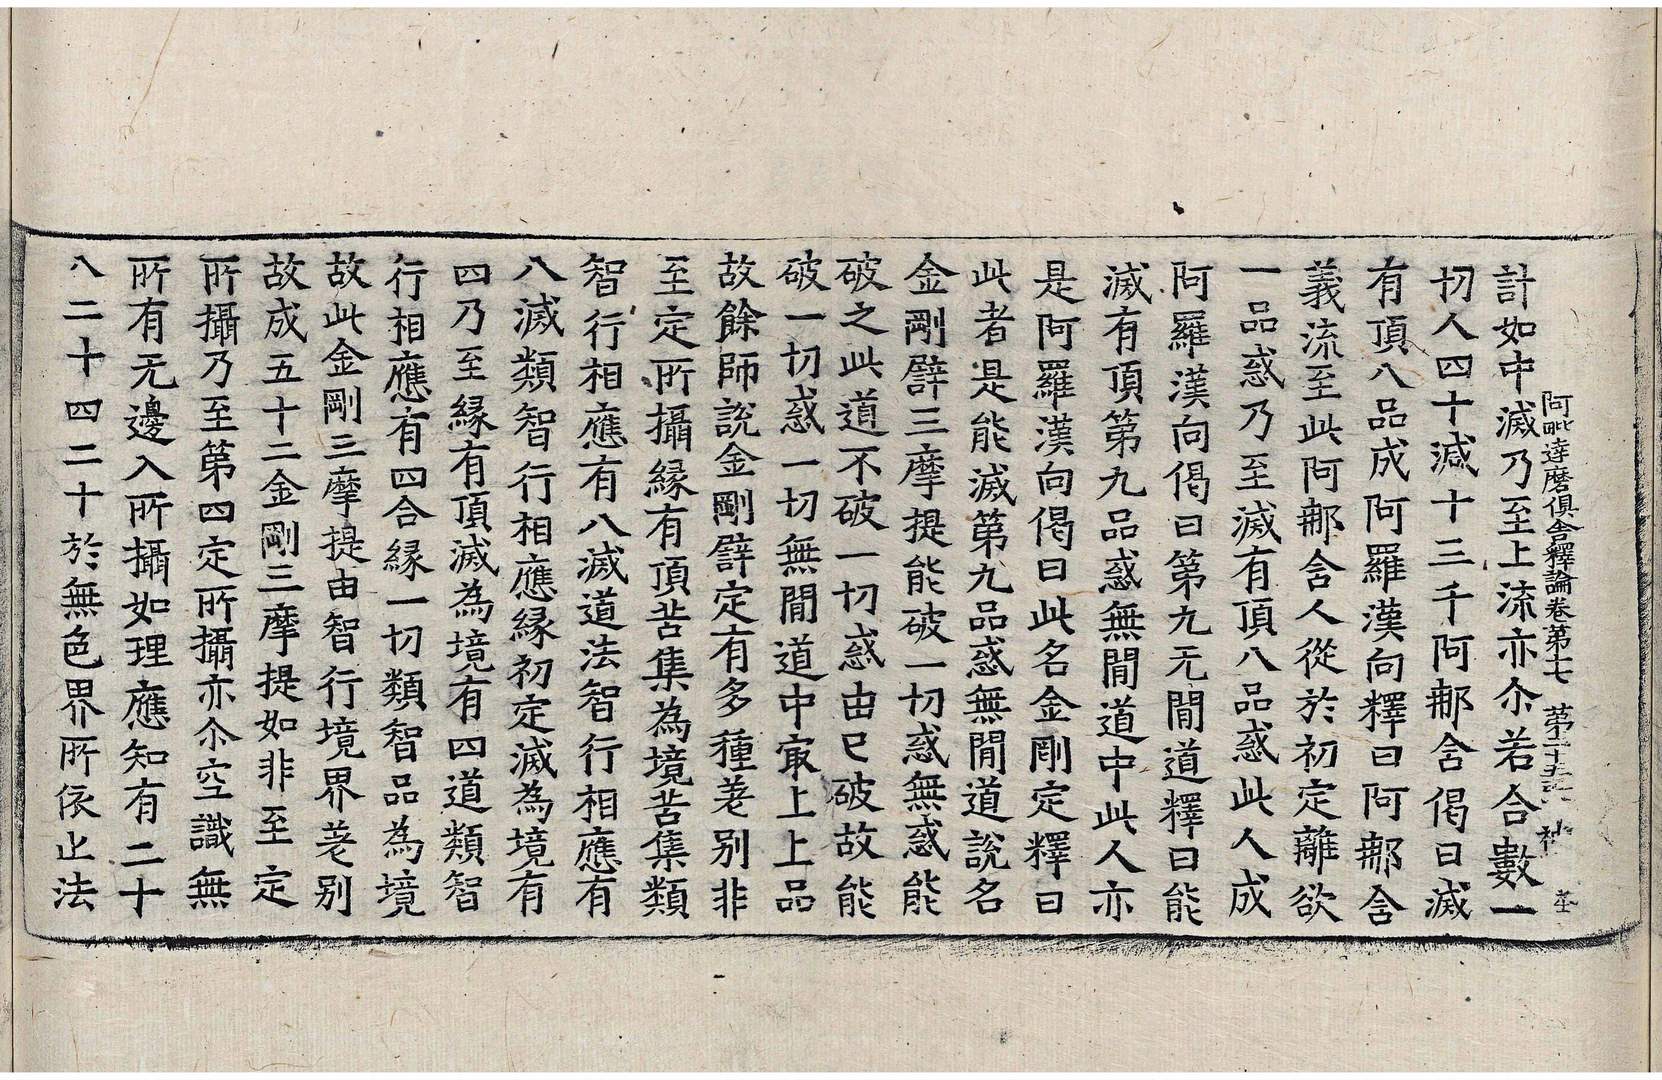 阿毗達磨俱舍釋論卷第十七　第二十五張
計如中滅乃至上流亦尒若合數一
切人四十減十三千阿那含偈曰滅
有頂八品成阿羅漢向釋曰阿那含
義流至此阿那含人從於初定離欲
一品惑乃至滅有頂八品惑此人成
阿羅漢向偈曰第九无間道釋曰能
滅有頂第九品惑無間道中此人亦
是阿羅漢向偈曰此名金剛定釋曰
此者是能滅第九品惑無間道說名
金剛譬三摩提能破一切惑無惑能
破之此道不破一切惑由已破故能
破一切惑一切無間道中㝡上上品
故餘師說金剛譬定有多種差别非
至定所攝緣有頂苦集為境苦集類
智行相應有八滅道法智行相應有
八滅類智行相應緣初定滅為境有
四乃至緣有頂滅為境有四道類智
行相應有四合緣一切類智品為境
故此金剛三摩提由智行境界差别
故成五十二金剛三摩提如非至定
所攝乃至第四定所攝亦尒空識無
所有无邊入所攝如理應知有二十
八二十四二十於無色界所依止法